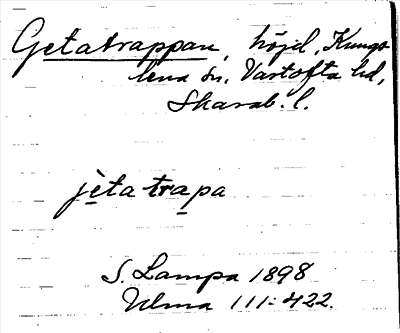 Getatrappan, höjd, Kungs
lena sn, Vartofta hd,
Skarab. l.
jèta trapa
S. Lampa 1898
Ulma 111:422.